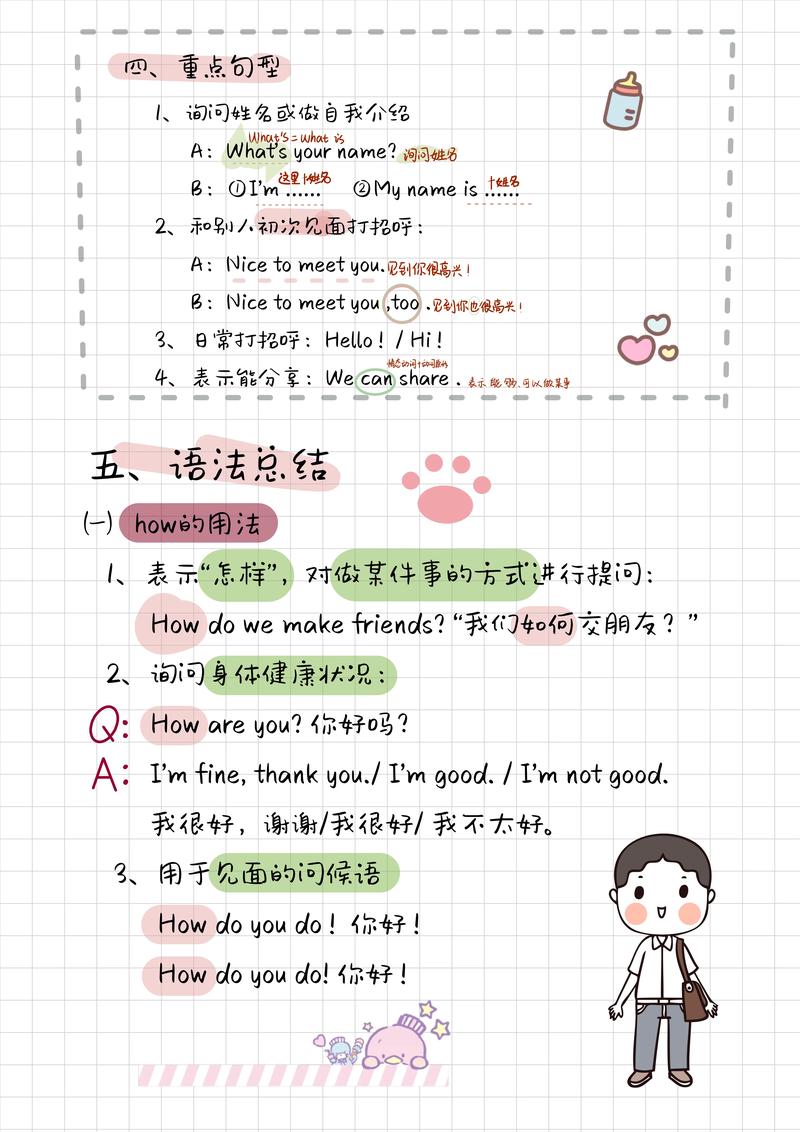 四、重点句型
1、询问姓名或做自我介绍
What's = What is
A：What's your name？询问姓名
B：①I'm ...... ②My name is ......
这里+姓名 +姓名
2、和别人初次见面打招呼：
A：Nice to meet you.见到你很高兴！
B：Nice to meet you ,too .见到你也很高兴！
3、日常打招呼：Hello！/ Hi！
情态动词+动词原形
4、表示能分享：We can share . 表示能够、可以做某事
五、语法总结
(一) how的用法
1、表示“怎样”，对做某件事的方式进行提问：
How do we make friends？“我们如何交朋友？”
2、询问身体健康状况：
Q: How are you? 你好吗？
A: I'm fine, thank you./ I'm good. / I'm not good.
我很好，谢谢/我很好/ 我不太好。
3、用于见面的问候语
How do you do！你好！
How do you do! 你好！